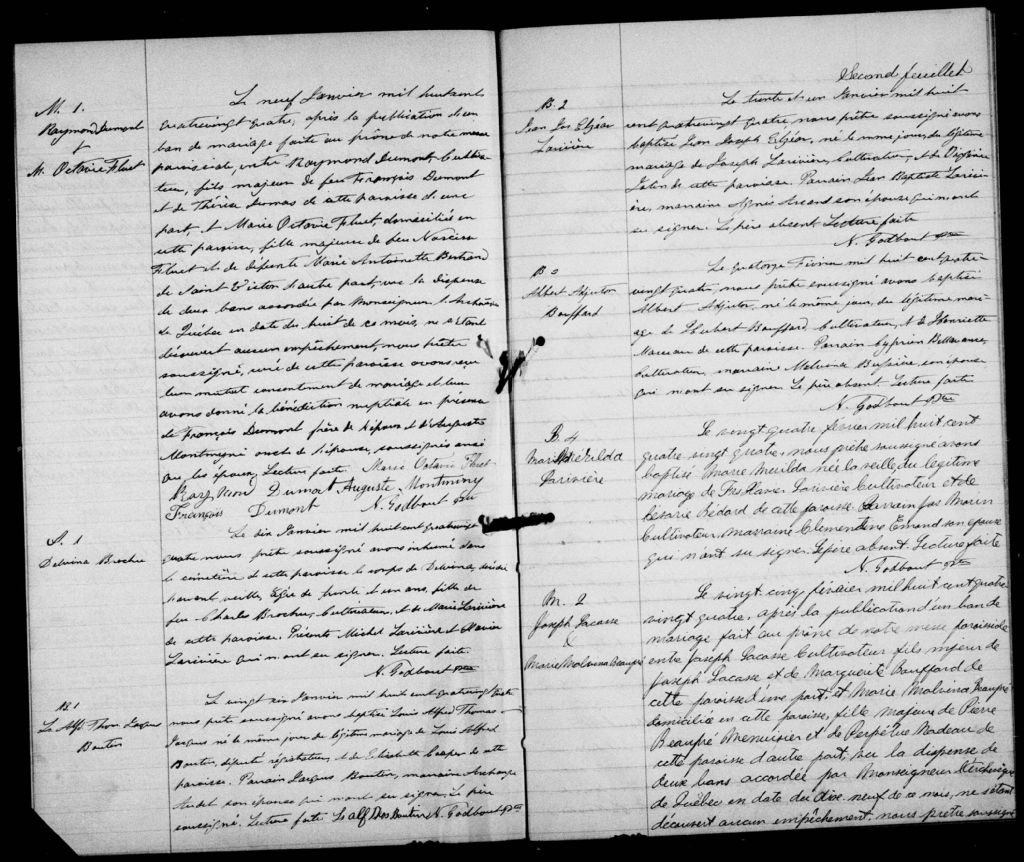 M. 1.
Raymond Dumont
&
M. Octavie Fluet
Le neuf Janvier mil huit cent
quatrevingt quatre, après la publication d'un
ban de mariage faite au prône de notre messe
paroissiale, entre Raymond Dumont, Cultiva-
teur, fils majeur de feu François Dumont
et de Thérèse Dumas de cette paroisse d'une
part, et Marie Octavie Fluet, domiciliée en
cette paroisse, fille majeure de feu Narcisse
Fluet et de défunte Marie Antoinette Bertrand
de Saint Victor d'autre part, vue la dispense
de deux bans accordée par Monseigneur l'Archevêque
de Québec en date du huit de ce mois, ne s'étant
découvert aucun empêchement, nous prêtre
soussigné, curé de cette paroisse avons reçu
leur mutuel consentement de mariage et leur
avons donné la bénédiction nuptiale en présence
de François Dumont frère de l'époux et d'Auguste
Montmigni de l'épouse, soussignés ainsi
que les époux. Lecture faite. Marie Octavie Fluet
Raymond Dumont Auguste Montminy
François Dumont N. Godbout Ptre
S. 1
Delvina Brochu
Le dix Janvier mil huit cent quatrevingt
quatre nous prêtre soussigné avons inhumé dans
le cimetière de cette paroisse le corps de Delvina, décédée
avant veille, âgée de trente et un ans, fille de
feu Charles Brochu, Cultivateur, et de Marie Larivière
de cette paroisse. Présents Michel Larivière et Xavier
Larivière qui n'ont su signer. Lecture faite.
N. Godbout Ptre
B. 1
Ls Alf. Thom. Jacques
Boutin
Le vingt six Janvier mil huit cent quatrevingt quatre
nous prêtre soussigné avons baptisé Louis Alfred Thomas
Jacques né le même jour du légitime mariage de Louis Alfred
Boutin, député régistrateur, et de Elizabeth de cette
paroisse. Parrain Jacques Boutin, marraine Archange
Audet son épouse qui n'ont su signer, le père
soussigné. Lecture faite Ls Alf Thos Boutin N. Godbout Ptre
Second feuillet
B. 2
Jean Jos Elzéar
Larivière
Le trente et un Janvier mil huit
cent quatrevingt quatre, nous prêtre soussigné avons
baptisé Jean Joseph Elzéar, né le même jour du légitime
mariage de Joseph Larivière, Cultivateur, et de
de cette paroisse. Parrain Jean Baptiste Larivi-
ère, marraine Agnès Arcand son épouse qui n'ont
su signer. Le père absent Lecture faite
N. Godbout Ptre
B 3
Albert Adjutor
Bouffard
Le quatorze Février mil huit cent quatre-
vingt quatre, nous prêtre soussigné avons baptisé
Albert Adjutor, né le même jour, du légitime mari-
age de Hubert Bouffard, Cultivateur, et de Henriette
Marceau de cette paroisse. Parrain Cyprien Bellavance,
Cultivateur, marraine Malvina Bussière, son épouse
qui n'ont su signer. Le père absent. Lecture faite
N. Godbout Ptre
B. 4
Marie Merilda
Larivière
Le vingt quatre février mil huit cent
quatre vingt quatre, nous prêtre soussigné avons
baptisé Marie Merilda née la veille du légitime
mariage de Frs Xavier Larivière Cultivateur et de
Césarie Bédard de cette paroisse. Parrain Jos Morin
Cultivateur, marraine Clementine Emond son épouse
qui n'ont su signer. Le père absent. Lecture faite
N. Godbout Ptre
M. 2
Joseph Lacasse
&
Marie Malvina Beaupré
Le vingt cinq février mil huit cent quatre
vingt quatre, après la publication d'un ban de
mariage fait au prône de notre messe paroissiale
entre Joseph Lacasse Cultivateur fils mineur de
Joseph Lacasse et de Marguerite Bouffard de
cette paroisse d'une part, et Marie Malvina Beaupré
domiciliée en cette paroisse, fille majeure de Pierre
Beaupré Menuisier et de Perpétue Nadeau de
cette paroisse d'autre part, vu la dispense de
deux bans accordée par Monseigneur l'Archevêque
de Québec en date du dix neuf de ce mois, ne s'étant
découvert aucun empêchement, nous prêtre soussigné